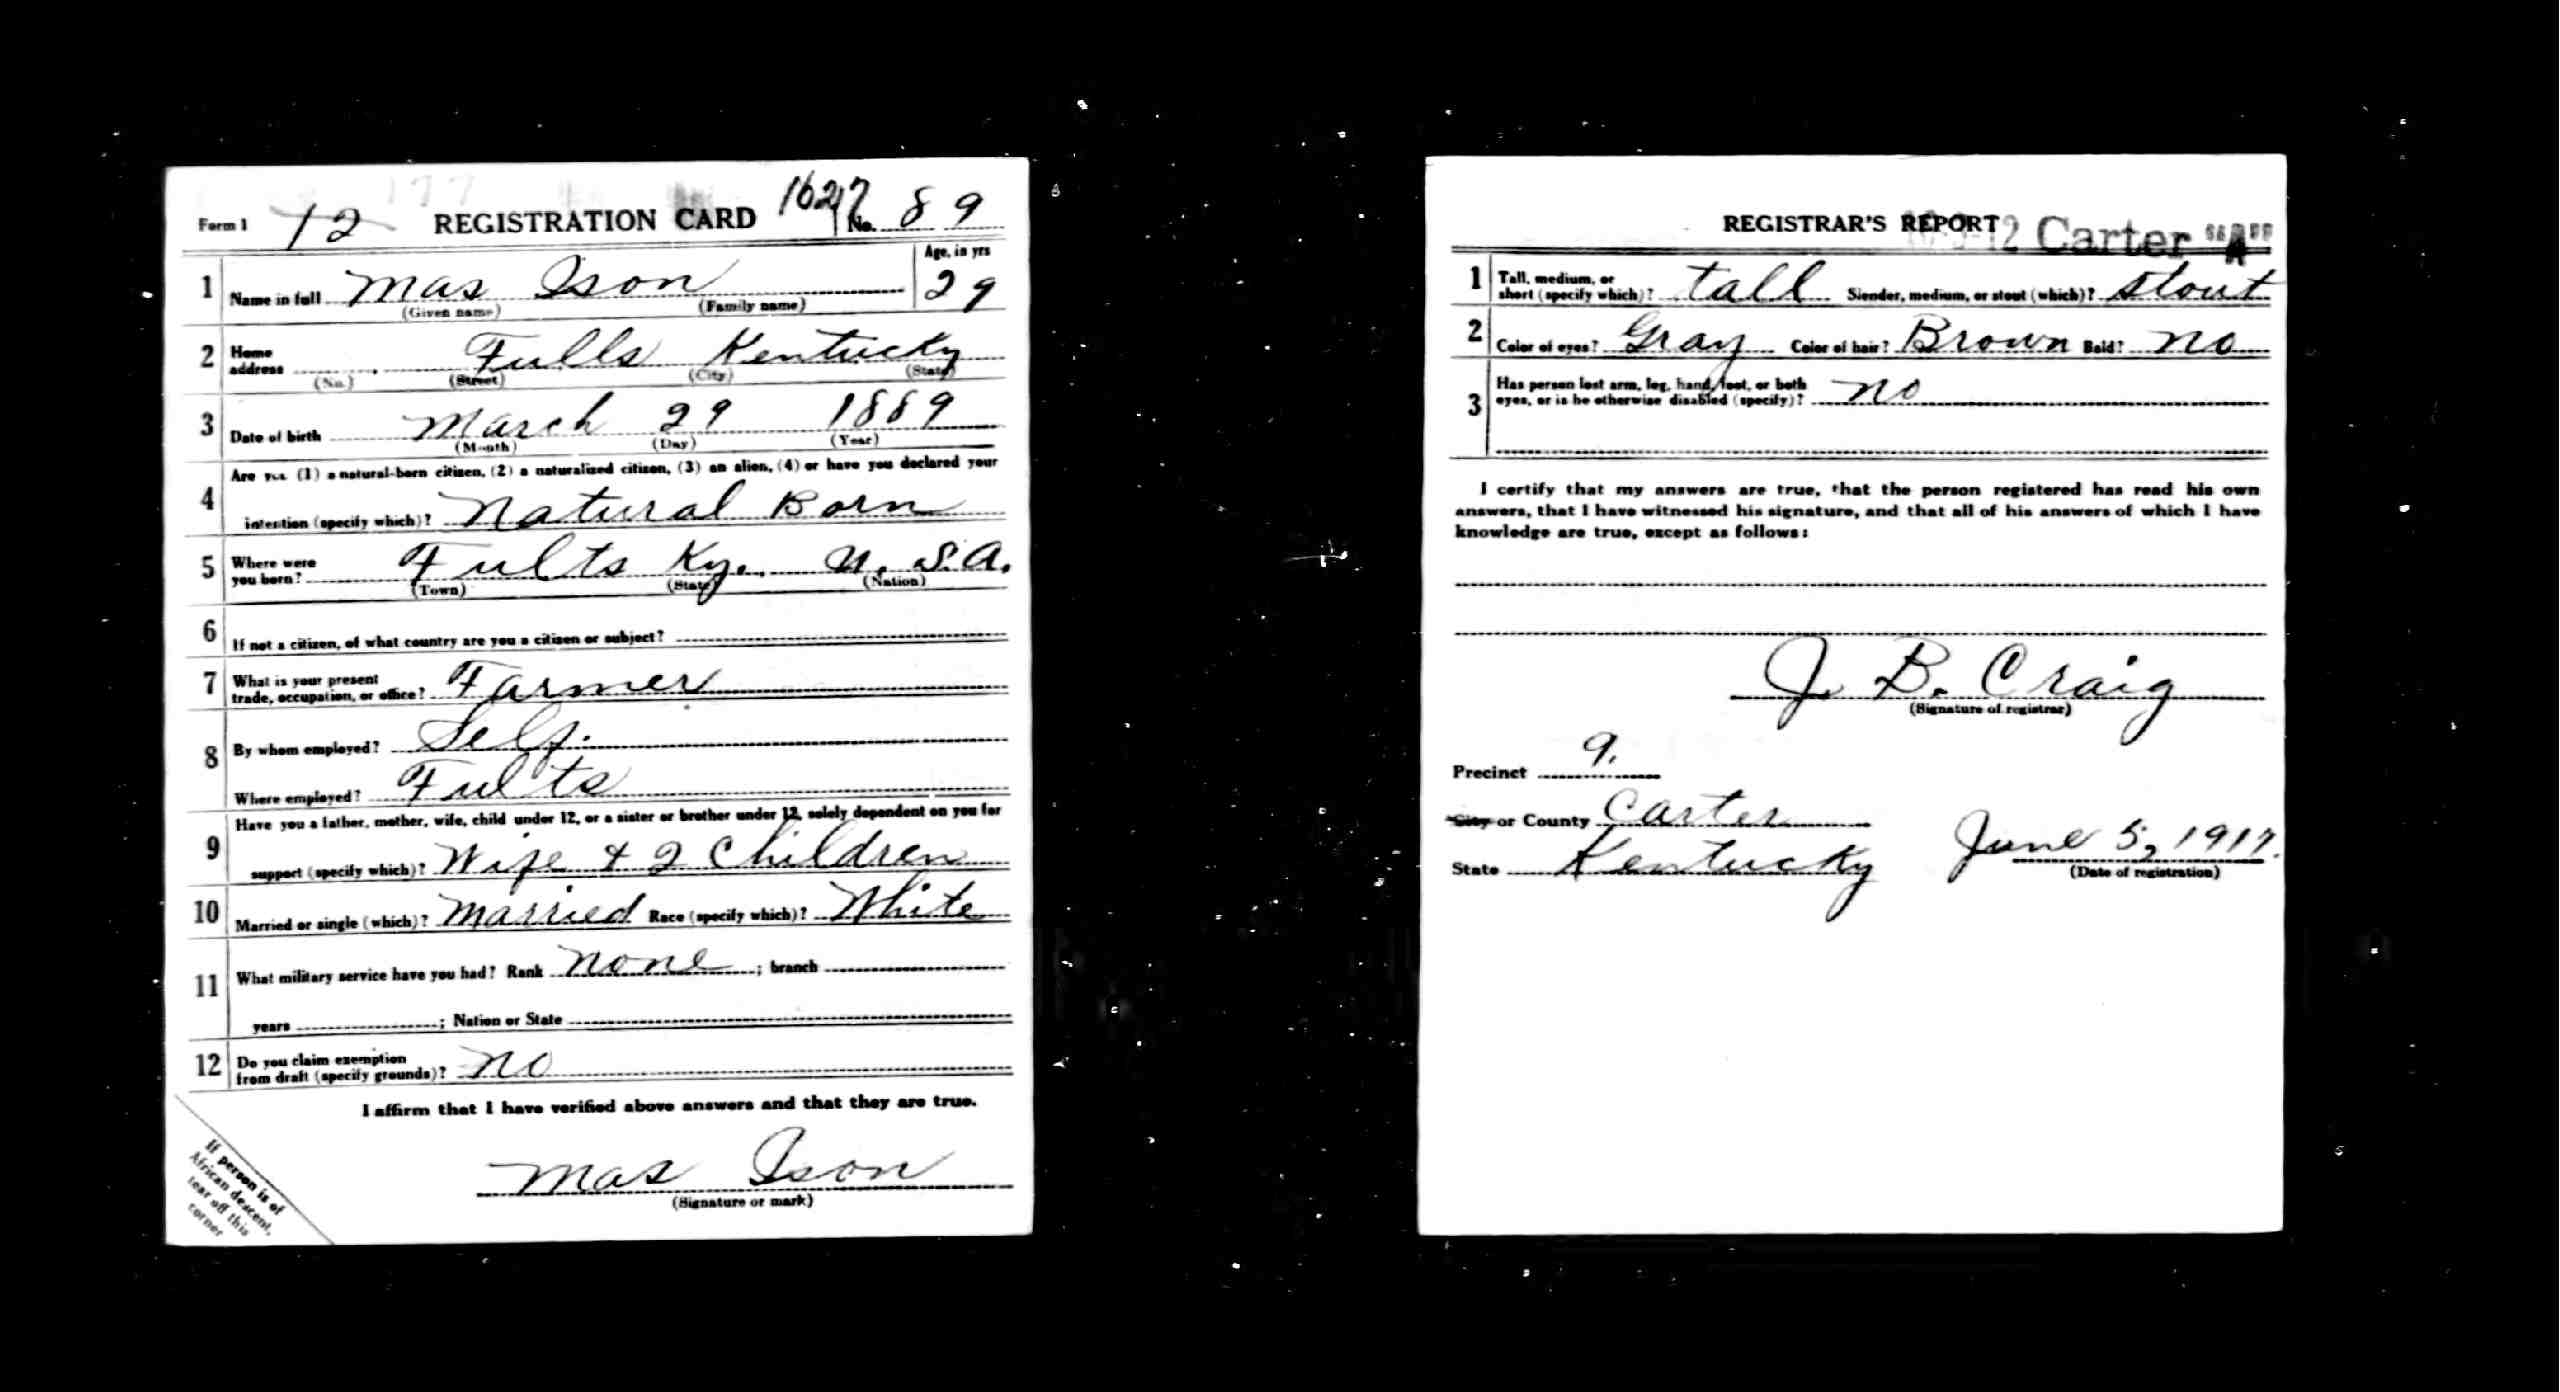 Form 1 12 REGISTRATION CARD 1627 No. 89
Age, in yrs
1 Name in full Mas Ison 29
(Given name) (Family name)
2 Home address Fulls Kentucky
(No.) (Street) (City) (State)
3 Date of birth March 29 1889
(Month) (Day) (Year)
4 Are you (1) a natural-born citizen, (2) a naturalized citizen, (3) an alien, (4) or have you declared your
intention (specify which)? Natural Born
5 Where were you born? Fults Ky. U. S. A.
(Town) (State) (Nation)
6 If not a citizen, of what country are you a citizen or subject?
7 What is your present trade, occupation, or office? Farmer
8 By whom employed? Self.
Where employed? Fults
9 Have you a father, mother, wife, child under 12, or a sister or brother under 12, solely dependent on you for
support (specify which)? Wife & 2 Children
10 Married or single (which)? Married Race (specify which)? White
11 What military service have you had? Rank none ; branch
years ; Nation or State
12 Do you claim exemption from draft (specify grounds)? No
I affirm that I have verified above answers and that they are true.
Mas Ison
(Signature or mark)
If person is of
African descent,
tear off this
corner
REGISTRAR'S REPORT Carter "A"
1 Tall, medium, or short (specify which)? tall Slender, medium, or stout (which)? stout
2 Color of eyes? Gray Color of hair? Brown Bald? No
3 Has person lost arm, leg, hand, foot, or both
eyes, or is he otherwise disabled (specify)? No
I certify that my answers are true, that the person registered has read his own
answers, that I have witnessed his signature, and that all of his answers of which I have
knowledge are true, except as follows:
J. B. Craig
(Signature of registrar)
Precinct 9.
City or County Carter
State Kentucky June 5, 1917.
(Date of registration)